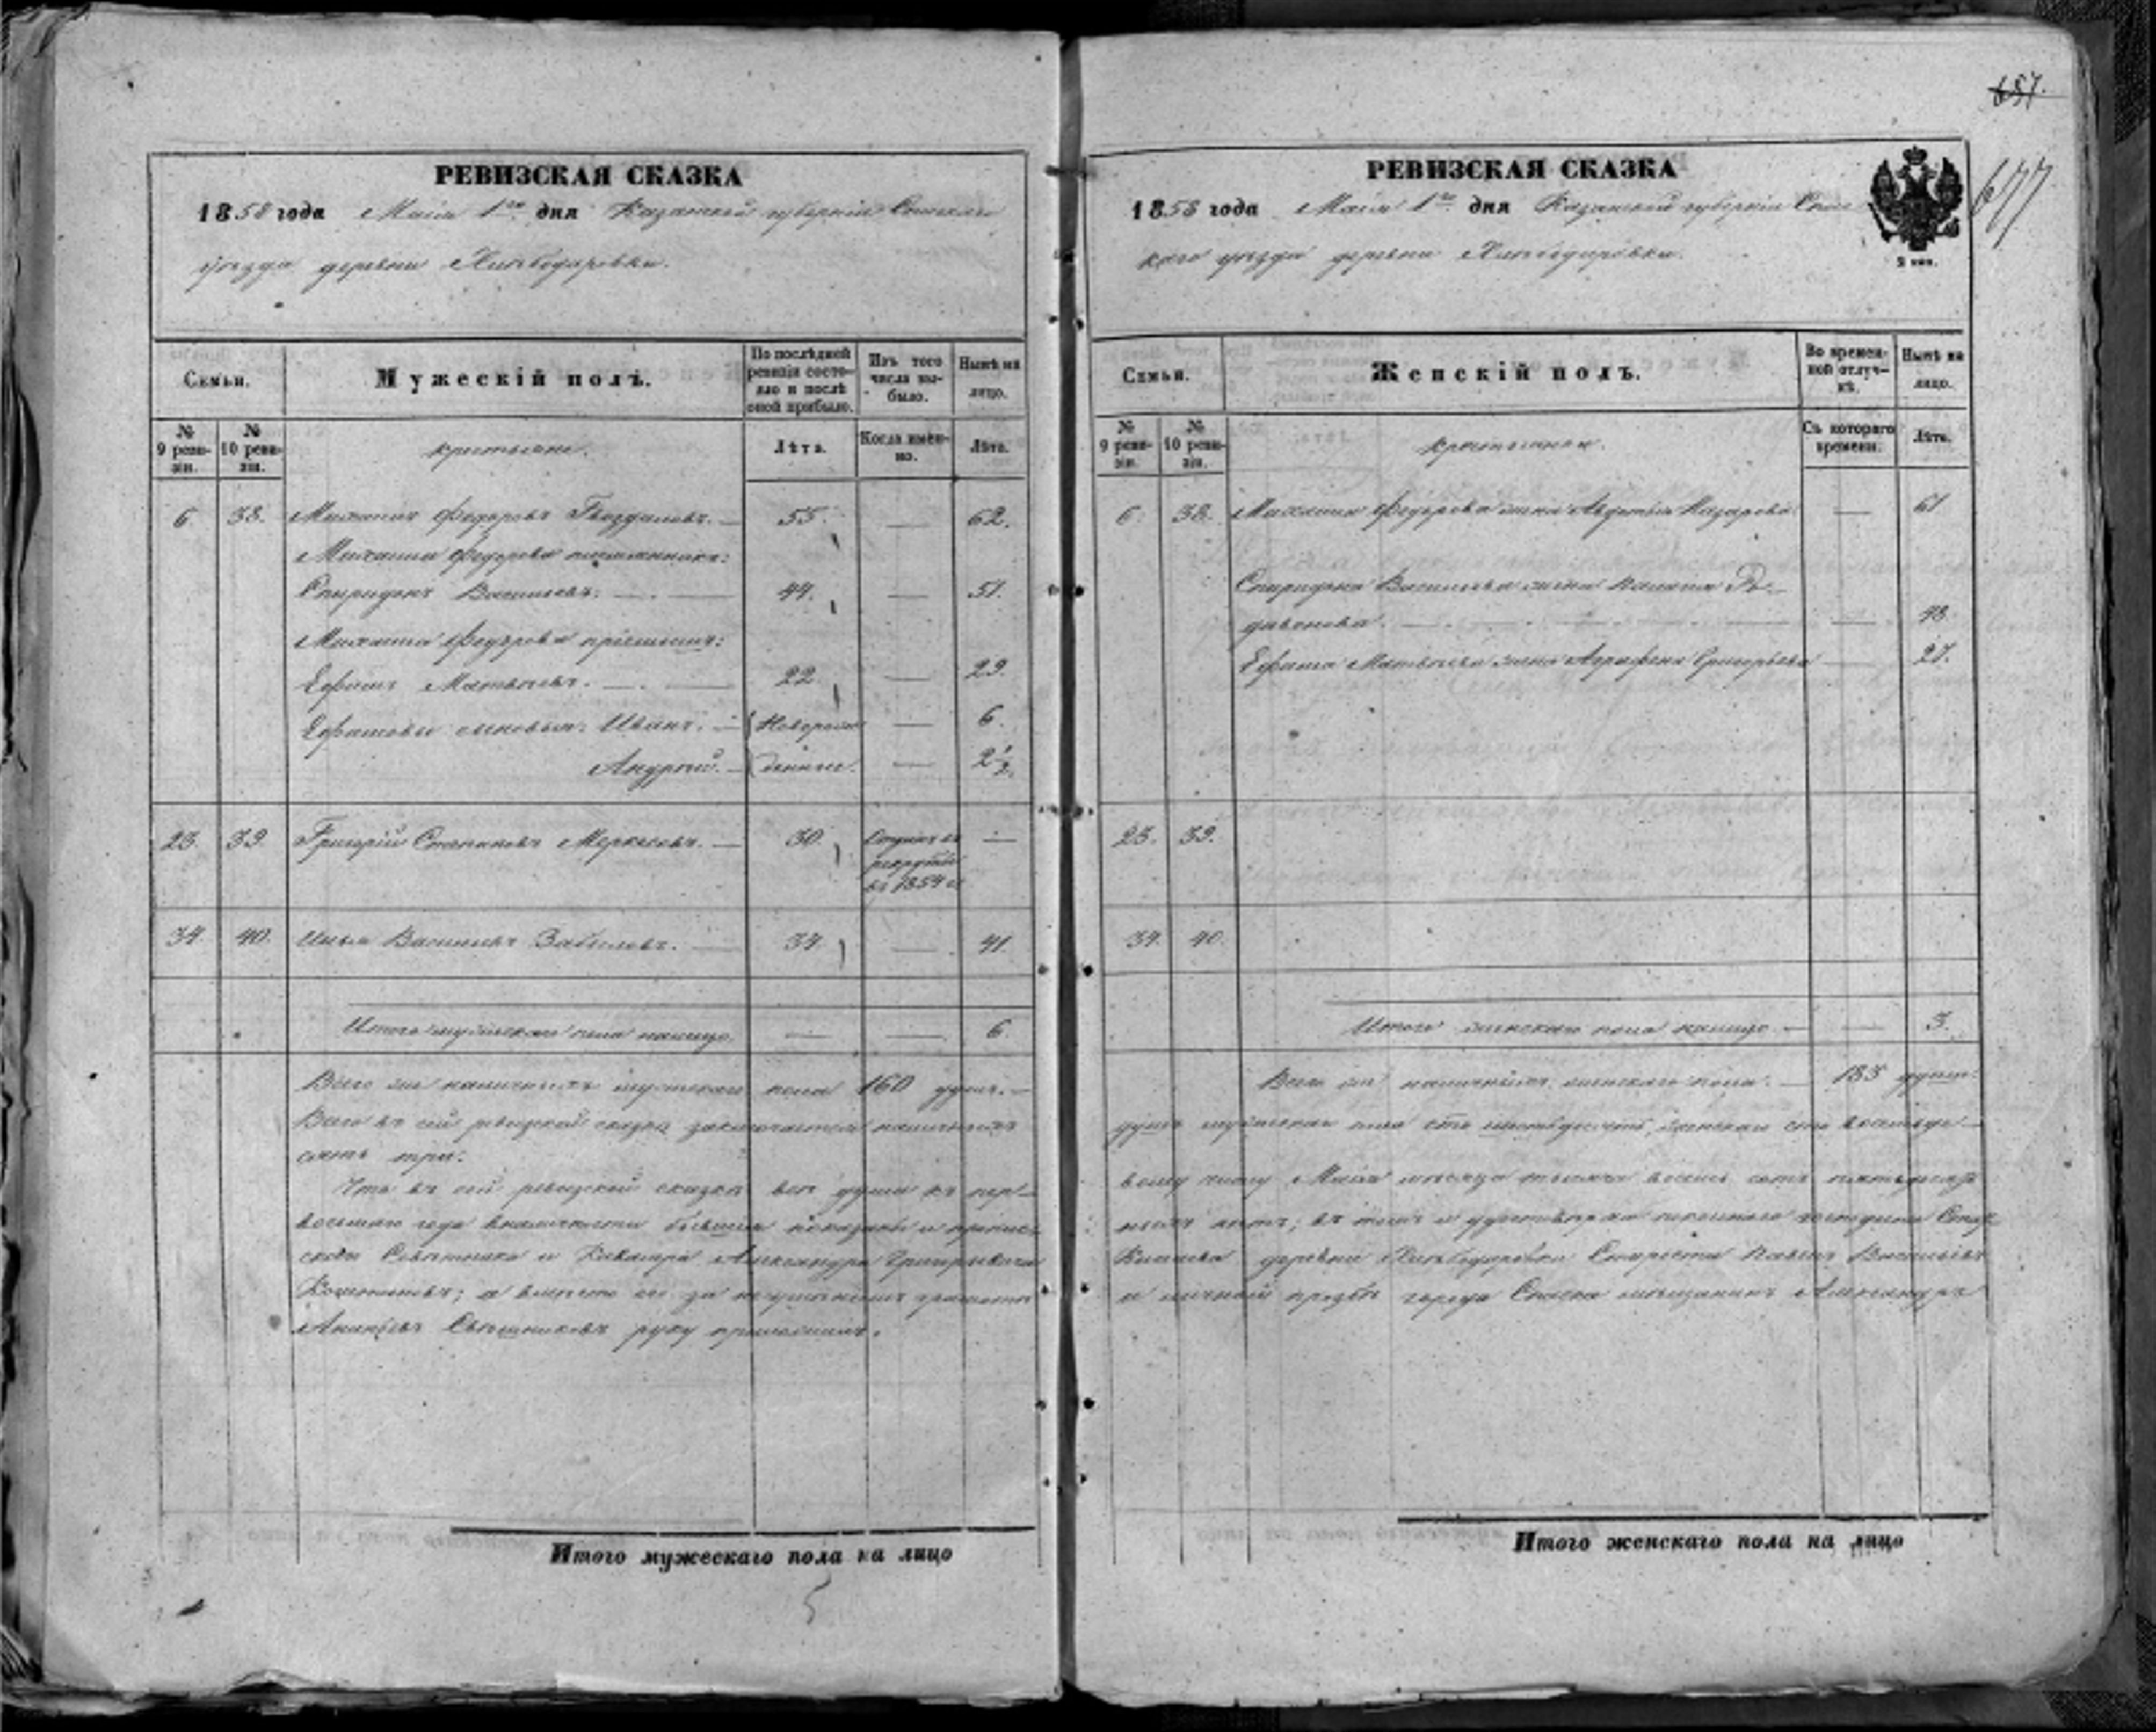 РЕВИЗСКАЯ СКАЗКА
1858 года Маія 1го дня Казанской губерніи Спаскаго
уѣзда деревни Хлѣбодаровки.
Семьи.
Мужескій полъ.
По послѣдней ревизіи состояло и послѣ оной прибыло.
Изъ того числа выбыло.
Нынѣ на лицо.
№ 9 ревизіи.
№ 10 ревизіи.
крестьяне.
Лѣта.
Когда именно.
Лѣта.
6 38. Михаилъ Федоровъ Гвоздаловъ. 55. — 62.
Михаила Федорова племянникъ:
Спиридонъ Васильевъ. 44. — 51.
Михаила Федорова пріемышъ:
Ефимъ Матвѣевъ. 22 — 29.
Ефимовы сыновья: Иванъ. Новорож — 6.
Андрей. денные. — 2 1/2.
23. 39. Григорій Степановъ 30. Отданъ въ рекруты въ 1854 г. —
34. 40. Илья Васильевъ 34. — 41.
Итого мужескаго пола налицо — — 6.
Всего наличныхъ мужескаго пола 160 душъ.
Всего въ сей ревизской сказкѣ заключается наличныхъ
сятъ три.
Что въ сей ревизской сказкѣ всѣ души къ пер-
восьмаго года въ наличности бывшія показаны и
Совѣтника и Кавалера Александра Григорьевича
а вмѣсто его за неумѣніемъ грамоты
Ананьевъ Свѣшниковъ руку приложилъ.
Итого мужескаго пола на лицо
5
657.
677
РЕВИЗСКАЯ СКАЗКА
1858 года Маія 1го дня Казанской губерніи Спас
каго уѣзда деревни Хлѣбодаровки.
Семьи.
Женскій полъ.
Во временной отлучкѣ.
Нынѣ на лицо.
№ 9 ревизіи.
№ 10 ревизіи.
крестьянки.
Съ котораго времени.
Лѣта.
6. 38. Михаила Федорова жена Авдотья Назарова — 61
Спиридона Васильева жена
— 48.
Ефима Матвѣева жена Аграфена Григорьева — 27.
23. 39.
34. 40.
Итого женскаго пола налицо — — 3.
Всего наличныхъ женскаго пола. — 183 души.
душъ мужескаго пола сто шестьдесятъ, женскаго сто восемьде-
вому числу Маія мѣсяца тысяча восемь сотъ пятьдесятъ
господина Стат
деревни Хлѣбодаровки Староста Павелъ Васильевъ
и личной прозбѣ города Спаска мѣщанинъ Александръ
Итого женскаго пола на лицо